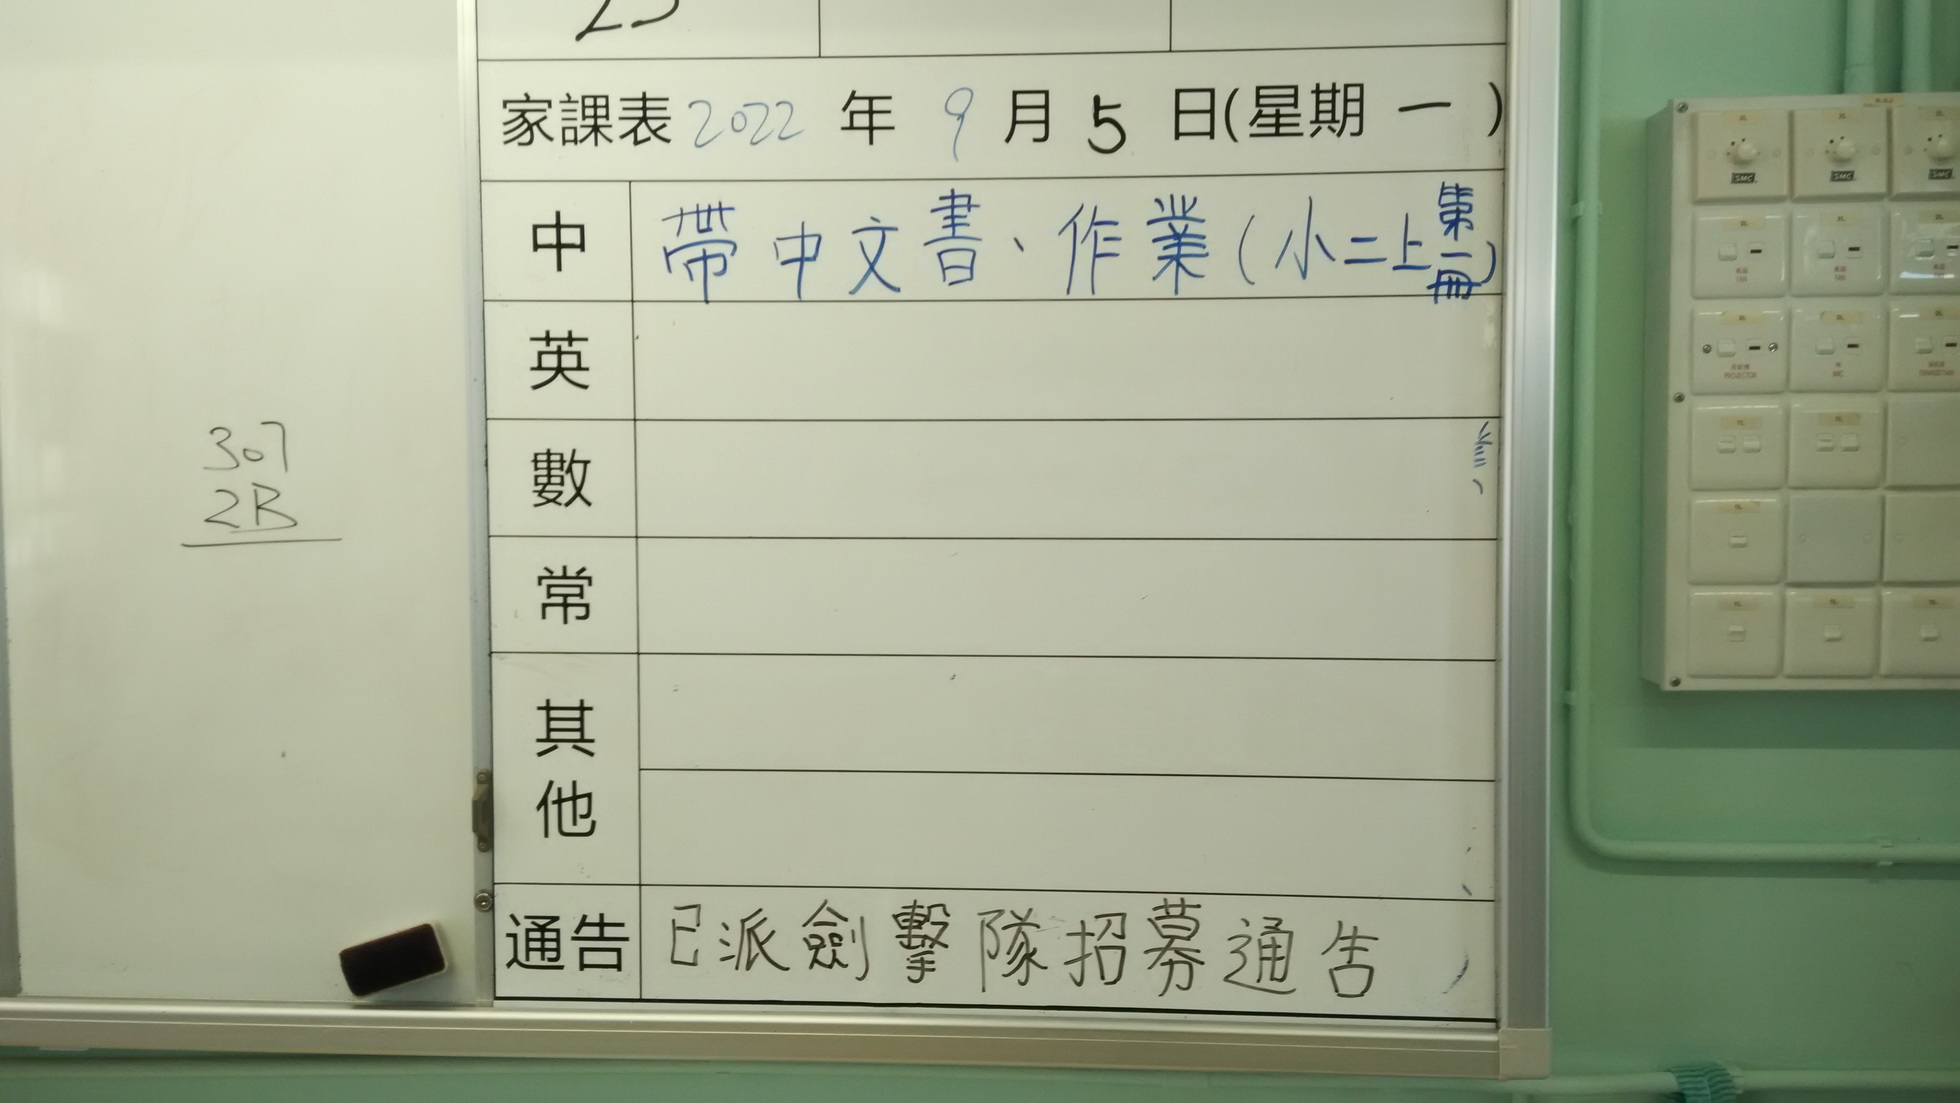 家課表 2022 年 9 月 5 日(星期 一 )
中 帶中文書、作業(小二上第一冊)
英
數
常
其他
通告 已派劍擊隊招募通告
307
2B
SMC SMC SMC
PROJECTOR
MIC